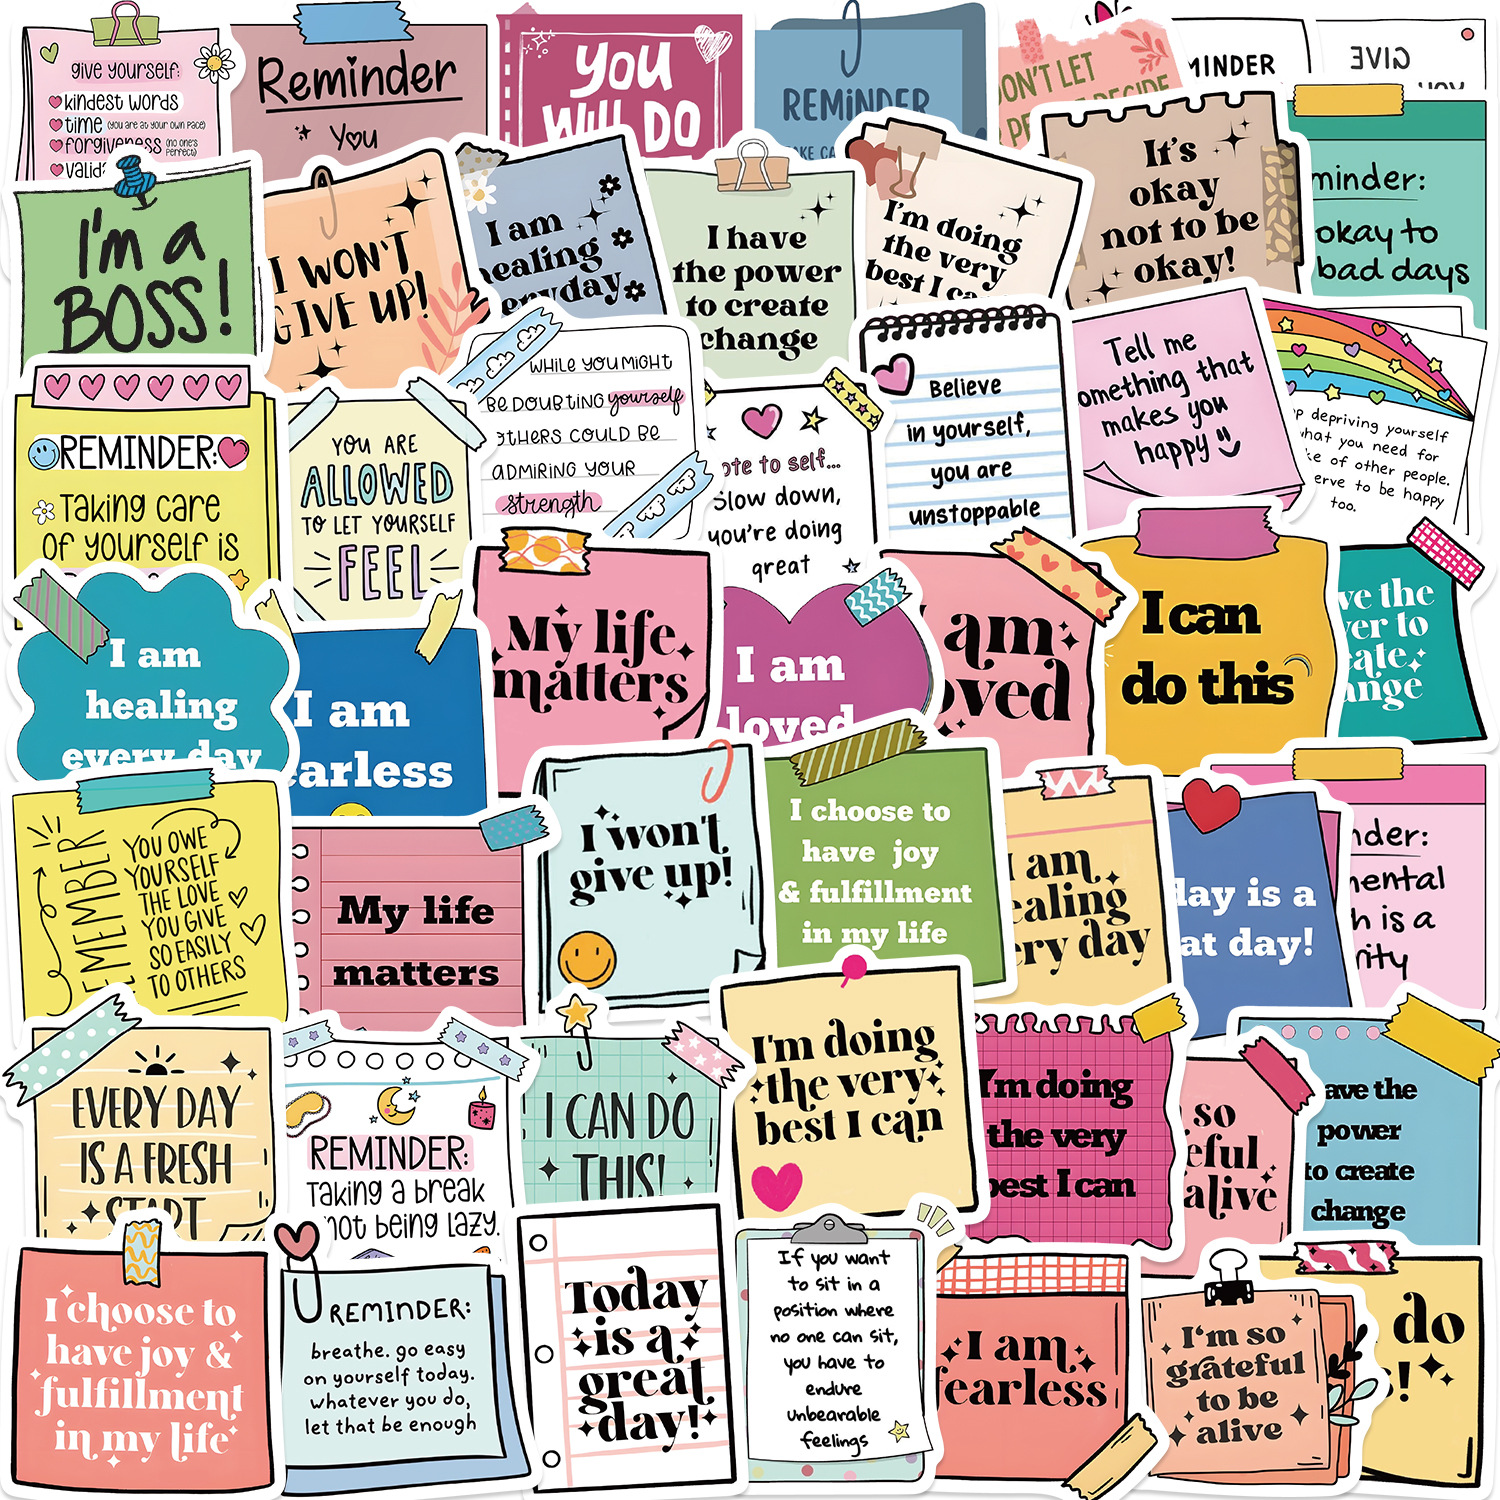 give yourself:
kindest words
time (you are at your own pace)
forgiveness (no one's perfect)
Reminder
You
YOU
WILL DO
REMINDER
LET
GIVE
I'm a
BOSS!
I WON'T
GIVE UP!
I am
healing
everyday
I have
the power
to create
change
I'm doing
the very
best I
It's
okay
not to be
okay!
okay to
bad days
REMINDER:
Taking care
of yourself is
YOU ARE
ALLOWED
TO LET YOURSELF
FEEL
WHILE YOU MIGHT
BE DOUBTING yourself
OTHERS COULD BE
ADMIRING YOUR
strength
to self...
Slow down,
you're doing
great
Believe
in yourself,
you are
unstoppable
Tell me
something that
makes you
happy
depriving yourself
what you need for
of other people.
to be happy
too.
I am
healing
every day
I am
fearless
My life
matters
I am
loved
am
loved
I can
do this
the
to
REMEMBER
YOU OWE
YOURSELF
THE LOVE
YOU GIVE
SO EASILY
TO OTHERS
My life
matters
I won't
give up!
I choose to
have joy
& fulfillment
in my life
I am
healing
every day
is a
day!
is a
EVERY DAY
IS A FRESH
START
REMINDER:
Taking a break
not being lazy.
I CAN DO
THIS!
I'm doing
the very
best I can
I'm doing
the very
best I can
so
alive
the
power
to create
change
I choose to
have joy &
fulfillment
in my life
REMINDER:
breathe. go easy
on yourself today.
whatever you do,
let that be enough
Today
is a
great
day!
If you want
to sit in a
position where
no one can sit,
you have to
endure
unbearable
feelings
I am
fearless
I'm so
grateful
to be
alive
do